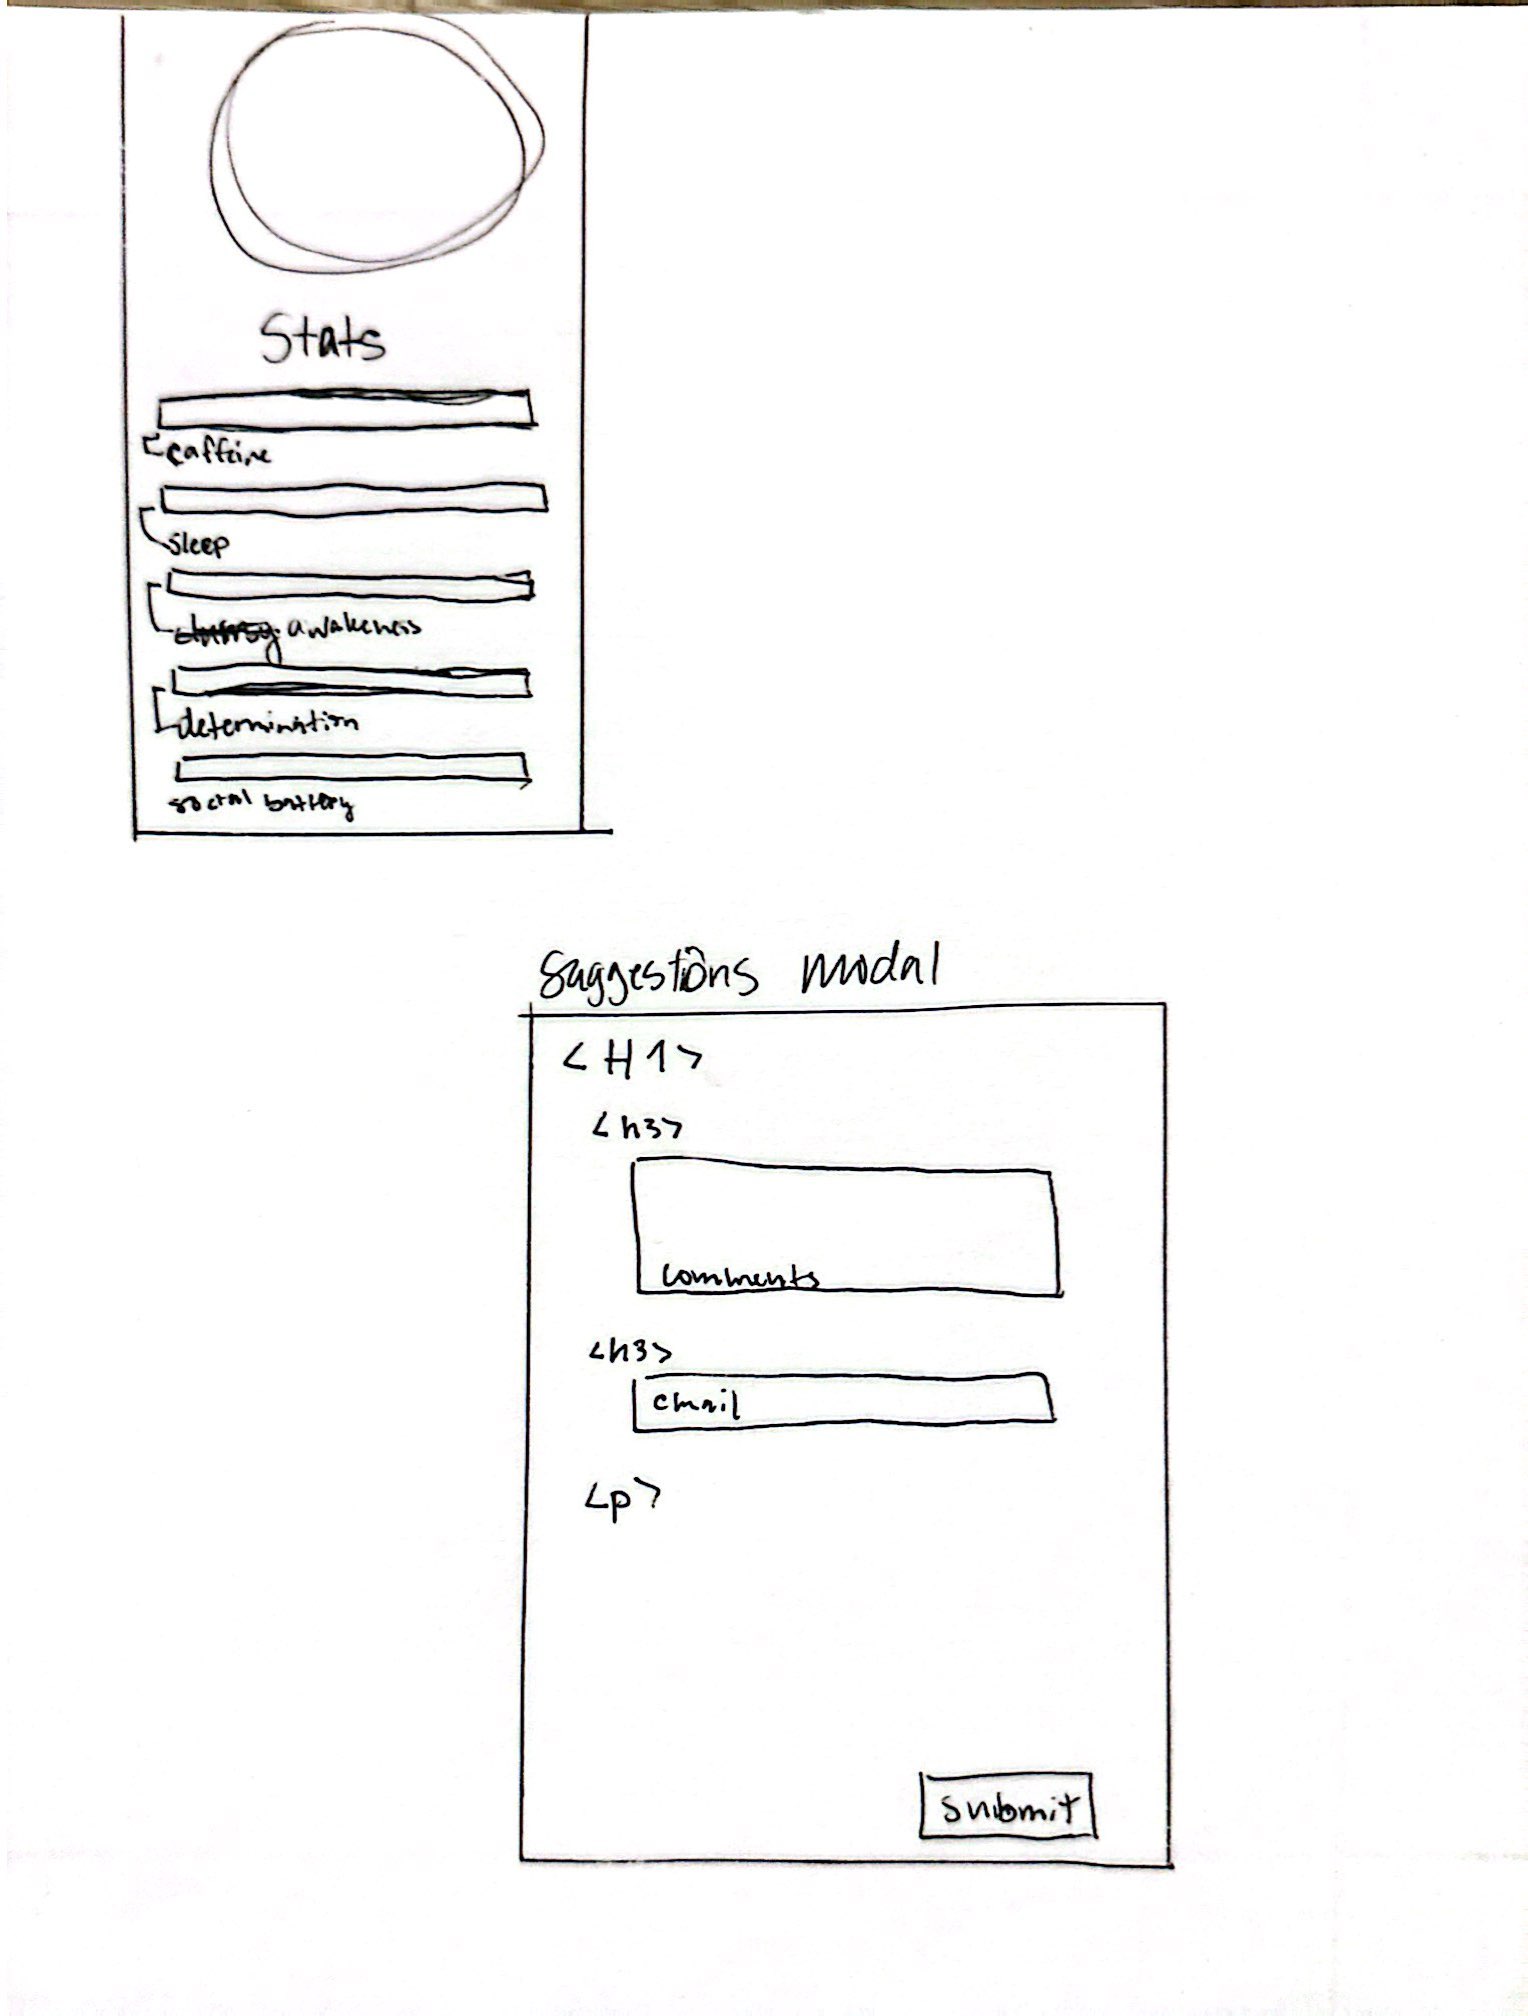 Stats
caffeine
sleep
awakeness
determination
social battery
Suggestions modal
<H1>
<h3>
comments
<h3>
email
<p>
submit